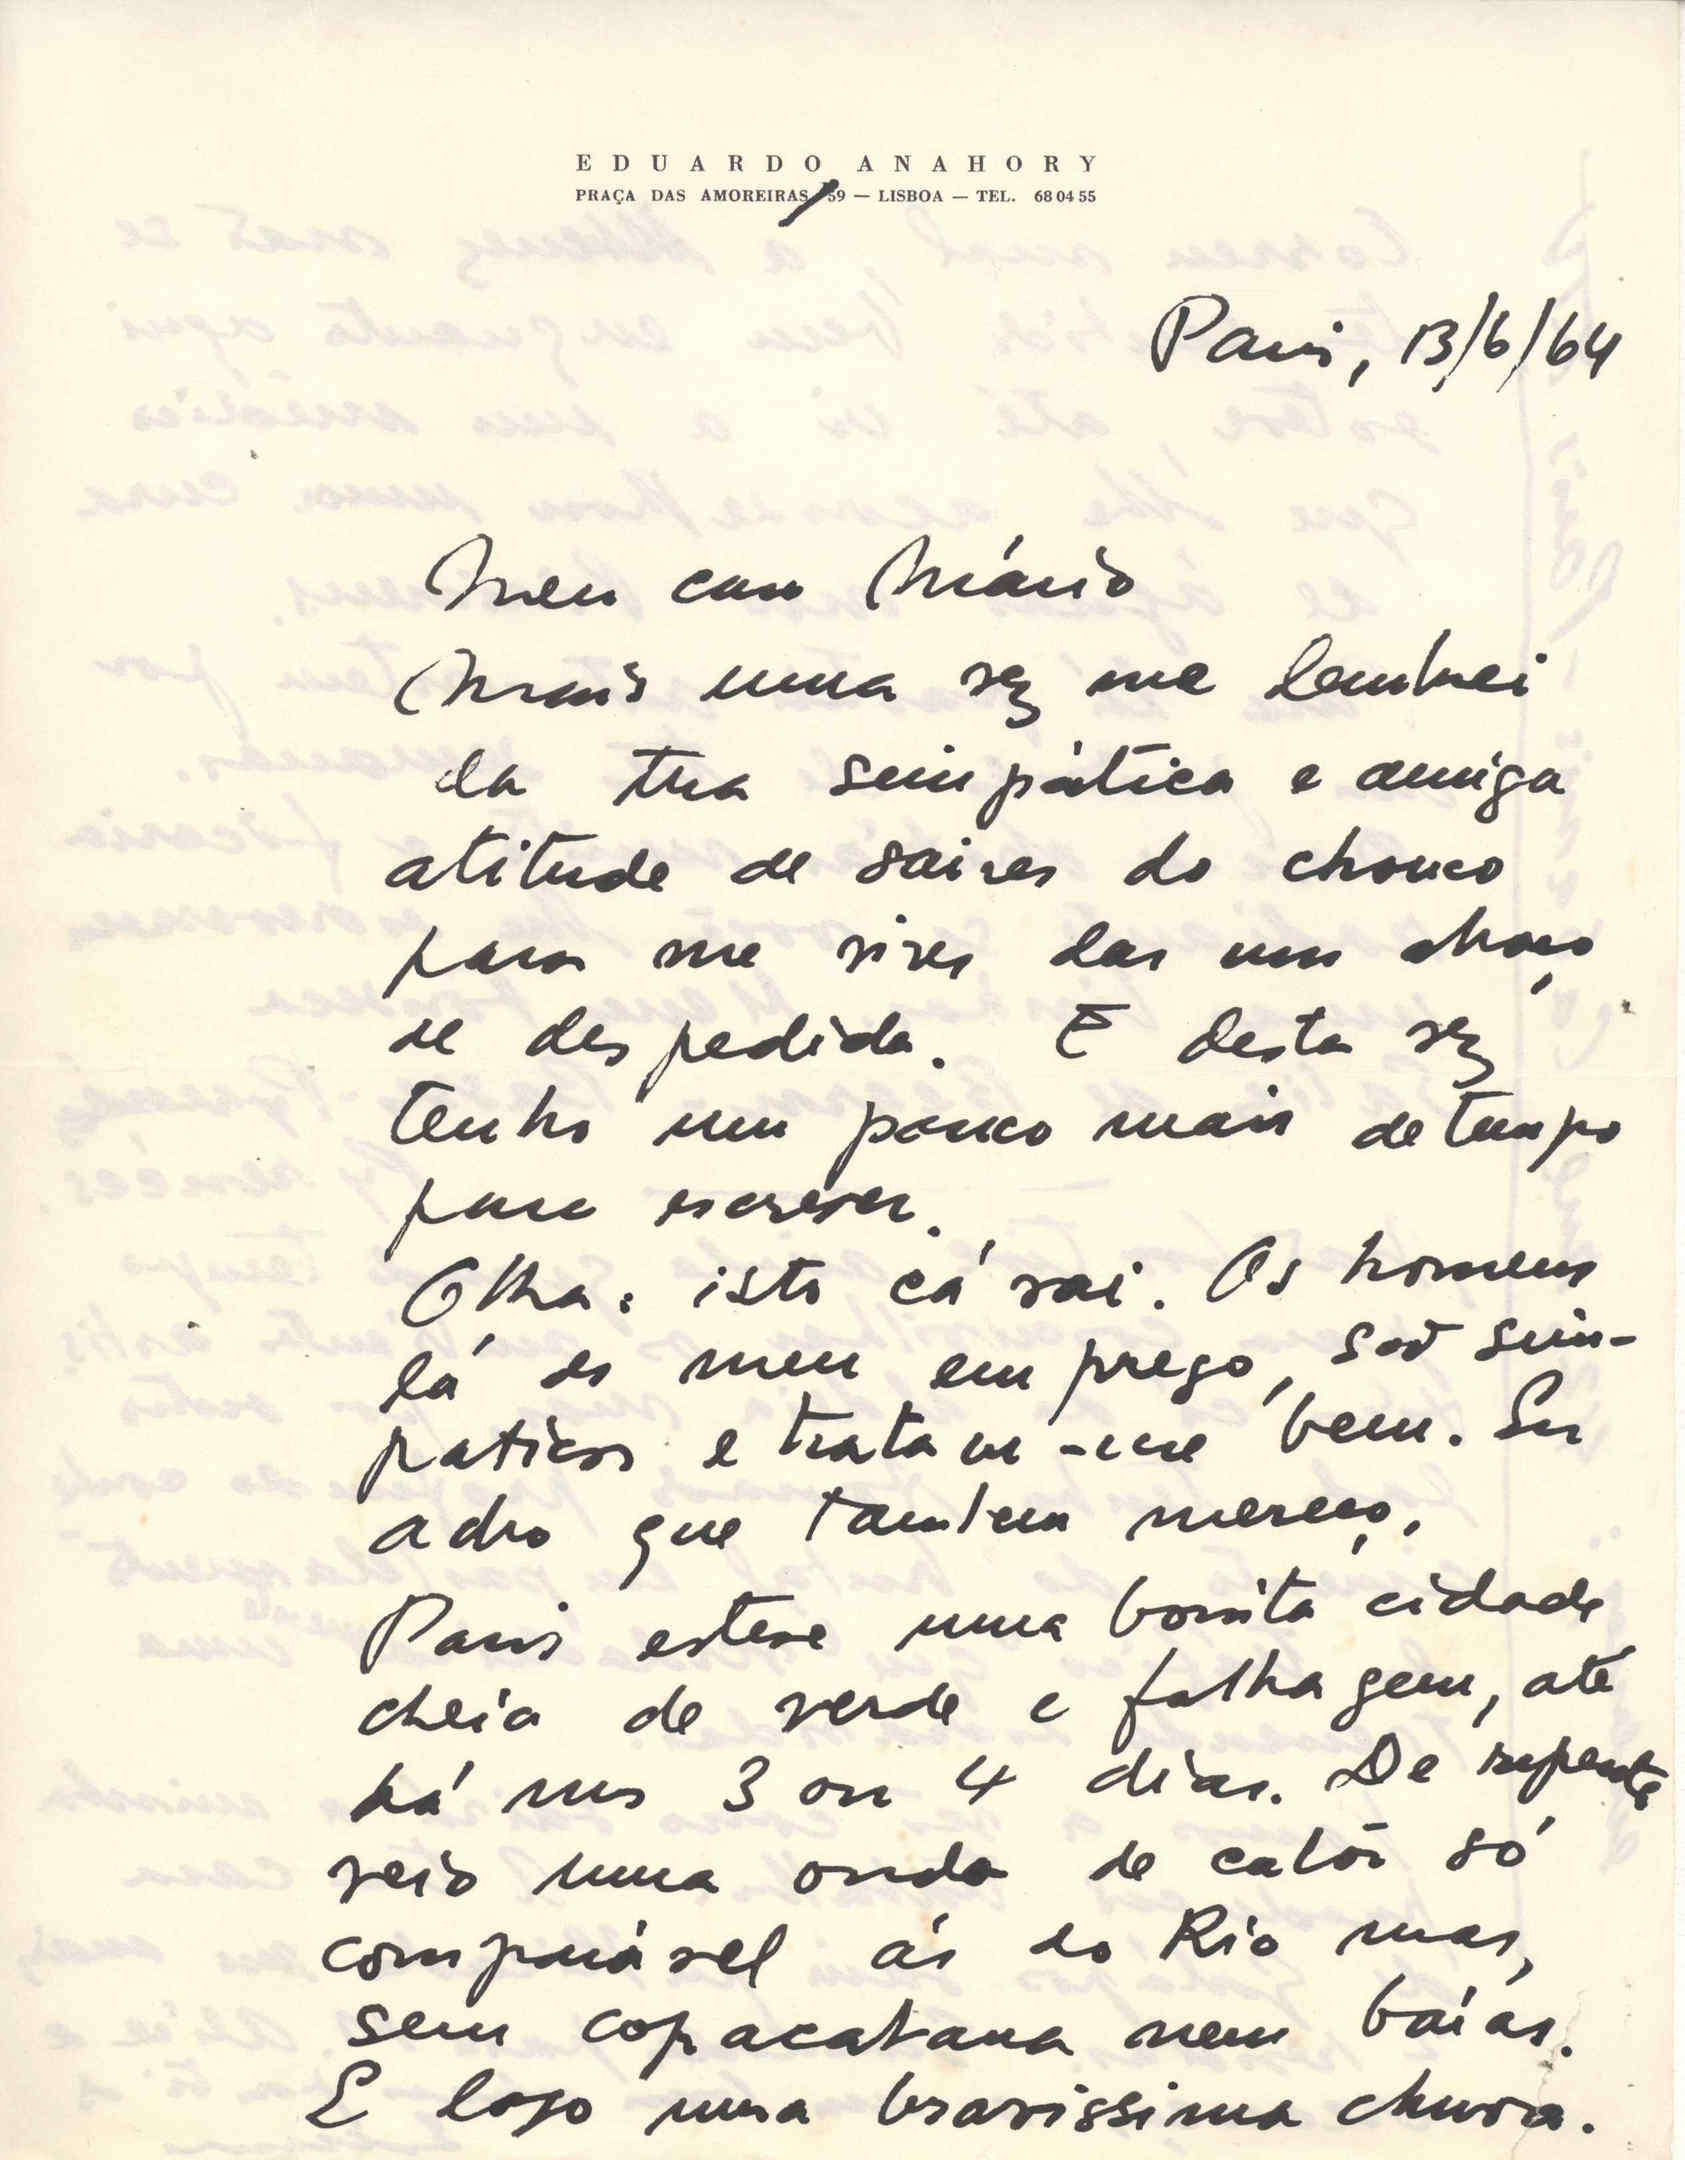 EDUARDO ANAHORY
PRAÇA DAS AMOREIRAS, 59 — LISBOA — TEL. 68 04 55
Paris, 13/6/64
Meu caro Mário
Mais uma vez me lembrei
da tua simpática e amiga
atitude de saires do chouco
para me vires dar um abraço
de despedida. E desta vez
tenho um pouco mais de tempo
para escrever.
Olha: isto cá vai. Os homens
lá do meu emprego, são sim-
paticos e tratam-me bem. Eu
acho que tambem mereço.
Paris esteve uma bonita cidade
cheia de verde e folhagem, até
há uns 3 ou 4 dias. De repente
veio uma onda de calôr só
comparável ás do Rio mas,
sem copacabana nem baías.
E logo uma bravissima chuva.